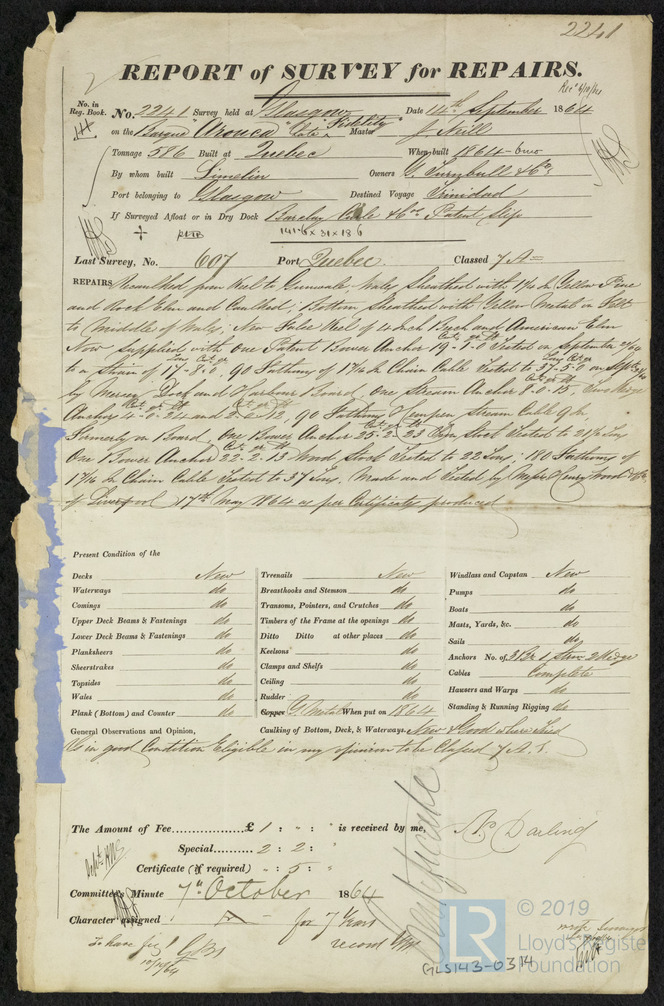 2241
REPORT of SURVEY for REPAIRS.
No. in Reg. Book.
No. 2241 Survey held at Glasgow Date 14th September 1864
on the Barque "Arouca" late "Fidelity" Master J Neill
Tonnage 586 Built at Quebec When built 1864
By whom built Owners G. Turnbull & Co.
Port belonging to Glasgow Destined Voyage Trinidad
If Surveyed Afloat or in Dry Dock Barclay Curle & Cos. Patent Slip
141.6 x 31 x 18.6
Last Survey, No. 607 Port Quebec Classed 7 A
REPAIRS Recaulked from Keel to Gunwale, Wales Sheathed with 1 1/4 in Yellow Pine
and Rock Elm and Caulked; Bottom Sheathed with Yellow Metal in Felt
to Middle of Wales; New False Keel of 4 inch Byrch and American Elm
Now Supplied with One Patent Bower Anchor 19-1-0 Tested in September
to a strain of 17-8-0, 90 Fathoms of 1 7/16 In Chain Cable Tested to 37-5-0 on
by Mersey Dock and Harbour Board, One Stream Anchor 8-0-15, Two Kedge
Anchors 4-0-24 and 2-2-15, 90 Fathoms Hempen Stream Cable 9 In
Formerly on Board, One Bower Anchor 25-2-23 Iron Stock Tested to 21 1/2 Tons
One Bower Anchor 22-2-13 Wood Stock Tested to 22 Tons. 180 Fathoms of
1 7/16 In Chain Cable Tested to 37 Tons. Made and Tested by Messrs Henry Wood & Co
of Liverpool 17th May 1864 as per Certificates produced
Present Condition of the
Decks New
Waterways do
Comings do
Upper Deck Beams & Fastenings do
Lower Deck Beams & Fastenings do
Planksheers do
Sheerstrakes do
Topsides do
Wales do
Plank (Bottom) and Counter do
Treenails New
Breasthooks and Stemson do
Transoms, Pointers, and Crutches do
Timbers of the Frame at the openings do
Ditto Ditto at other places do
Keelsons do
Clamps and Shelfs do
Ceiling do
Rudder do
Copper Y. Metal When put on 1864
Windlass and Capstan New
Pumps do
Boats do
Masts, Yards, &c. do
Sails do
Anchors No. of 3 Br 1 Strm 2 Kedge
Cables Complete
Hausers and Warps do
Standing & Running Rigging do
General Observations and Opinion, Caulking of Bottom, Deck, & Waterways. New & Good where Tried
Is in good Condition Eligible in my opinion to be Classed 7 A. 1.
The Amount of Fee £ 1 : " : " is received by me, A. Darling
Special 2 : 2 : "
Certificate (if required) " : 5 : "
Committee's Minute 7th October 1864
Character assigned A - for 7 Years
record
10/10/64
© 2019
LR
Lloyd's Register
Foundation
GLS143-0314